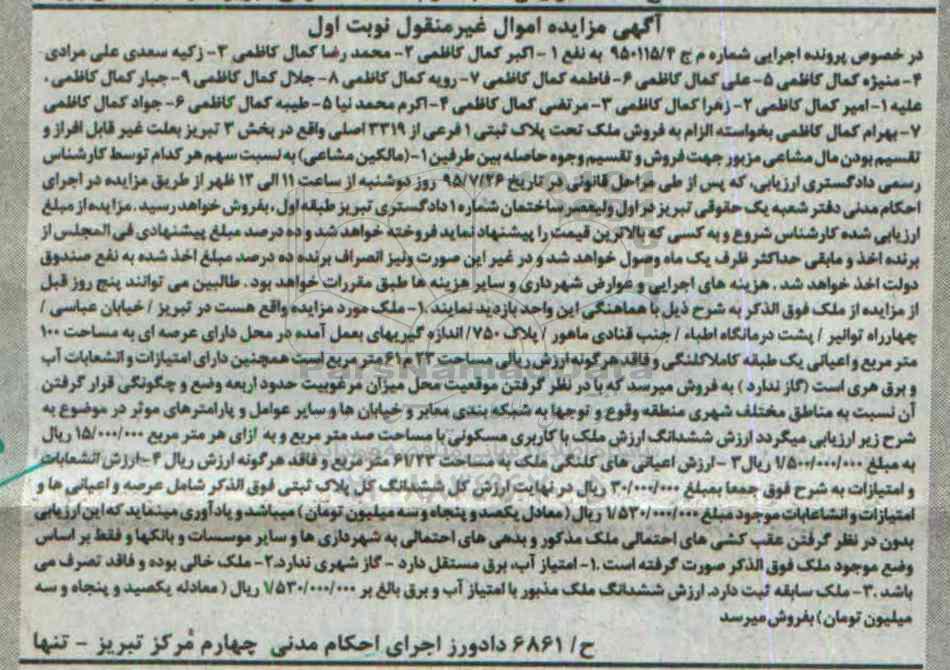 آگهی مزایده اموال غیرمنقول نوبت اول
در خصوص پرونده اجرایی شماره م ج ۹۵۰۱۱۵/۴ به نفع ۱- اکبر کمال کاظمی ۲- محمد رضا کمال کاظمی ۳- زکیه سعدی علی مرادی
۴- منیژه کمال کاظمی ۵- علی کمال کاظمی ۶- فاطمه کمال کاظمی ۷- رویه کمال کاظمی ۸- جلال کمال کاظمی ۹- جبار کمال کاظمی ،
علیه ۱- امیر کمال کاظمی ۲- زهرا کمال کاظمی ۳- مرتضی کمال کاظمی ۴- اکرم محمد نیا ۵- طیبه کمال کاظمی ۶- جواد کمال کاظمی
۷- بهرام کمال کاظمی بخواسته الزام به فروش ملک تحت پلاک ثبتی ۱ فرعی از ۳۳۱۹ اصلی واقع در بخش ۳ تبریز بعلت غیر قابل افراز و
تقسیم بودن مال مشاعی مزبور جهت فروش و تقسیم وجوه حاصله بین طرفین ۱- (مالکین مشاعی) به نسبت سهم هر کدام توسط کارشناس
رسمی دادگستری ارزیابی، که پس از طی مراحل قانونی در تاریخ ۹۵/۷/۲۶ روز دوشنبه از ساعت ۱۱ الی ۱۲ ظهر از طریق مزایده در اجرای
احکام مدنی دفتر شعبه یک حقوقی تبریز در اول ولیعصر ساختمان شماره ۱ دادگستری تبریز طبقه اول ، بفروش خواهد رسید . مزایده از مبلغ
ارزیابی شده کارشناس شروع و به کسی که بالاترین قیمت را پیشنهاد نماید فروخته خواهد شد و ده درصد مبلغ پیشنهادی فی المجلس از
برنده اخذ و مابقی حداکثر ظرف یک ماه وصول خواهد شد و در غیر این صورت ونیز انصراف برنده ده درصد مبلغ اخذ شده به نفع صندوق
دولت اخذ خواهد شد . هزینه های اجرایی و عوارض شهرداری و سایر هزینه ها طبق مقررات خواهد بود . طالبین می توانند پنج روز قبل
از مزایده از ملک فوق الذکر به شرح ذیل با هماهنگی این واحد بازدید نمایند .۱- ملک مورد مزایده واقع هست در تبریز / خیابان عباسی /
چهارراه توانیر / پشت درمانگاه اطباء / جنب قنادی ماهور / پلاک ۷۵۰/ اندازه گیریهای بعمل آمده در محل دارای عرصه ای به مساحت ۱۰۰
متر مربع و اعیانی یک طبقه کاملا کلنگی و فاقد هرگونه ارزش ریالی مساحت ۲۳ م ۶۱ متر مربع است همچنین دارای امتیازات و انشعابات آب
و برق هری است (گاز ندارد ) به فروش میرسد که با در نظر گرفتن موقعیت محل میزان مرغوبیت حدود اربعه وضع و چگونگی قرار گرفتن
آن نسبت به مناطق مختلف شهری منطقه وقوع و توجها به شبکه بندی معابر و خیابان ها و سایر عوامل و پارامترهای موثر در موضوع به
شرح زیر ارزیابی میگردد ارزش ششدانگ ارزش ملک با کاربری مسکونی با مساحت صد متر مربع و به ازای هر متر مربع ۱۵/۰۰۰/۰۰۰ ریال
به مبلغ ۱/۵۰۰/۰۰۰/۰۰۰ ریال ۳ -ارزش اعیانی های کلنگی ملک به مساحت ۶۱/۲۳ متر مربع و فاقد هرگونه ارزش ریال ۴-ارزش انشعابات
و امتیازات به شرح فوق جمعا بمبلغ ۳۰/۰۰۰/۰۰۰ ریال در نهایت ارزش کل ششدانگ کل پلاک ثبتی فوق الذکر شامل عرصه و اعیانی ها و
امتیازات و انشاعابات موجود مبلغ ۱/۵۳۰/۰۰۰/۰۰۰ ریال ( معادل یکصد و پنجاه و سه میلیون تومان ) میباشد و یادآوری مینماید که این ارزیابی
بدون در نظر گرفتن عقب کشی های احتمالی ملک مذکور و بدهی های احتمالی به شهرداری ها و سایر موسسات و بانکها و فقط بر اساس
وضع موجود ملک فوق الذکر صورت گرفته است .۱- امتیاز آب، برق مستقل دارد - گاز شهری ندارد.۲- ملک خالی بوده و فاقد تصرف می
باشد .۳- ملک سابقه ثبت دارد. ارزش ششدانگ ملک مذبور با امتیاز آب و برق بالغ بر ۱/۵۳۰/۰۰۰/۰۰۰ ریال ( معادله یکصید و پنجاه و سه
میلیون تومان) بفروش میرسد
ح/ ۶۸۶۱ دادورز اجرای احکام مدنی چهارم مرکز تبریز - تنها
ParsNamadData